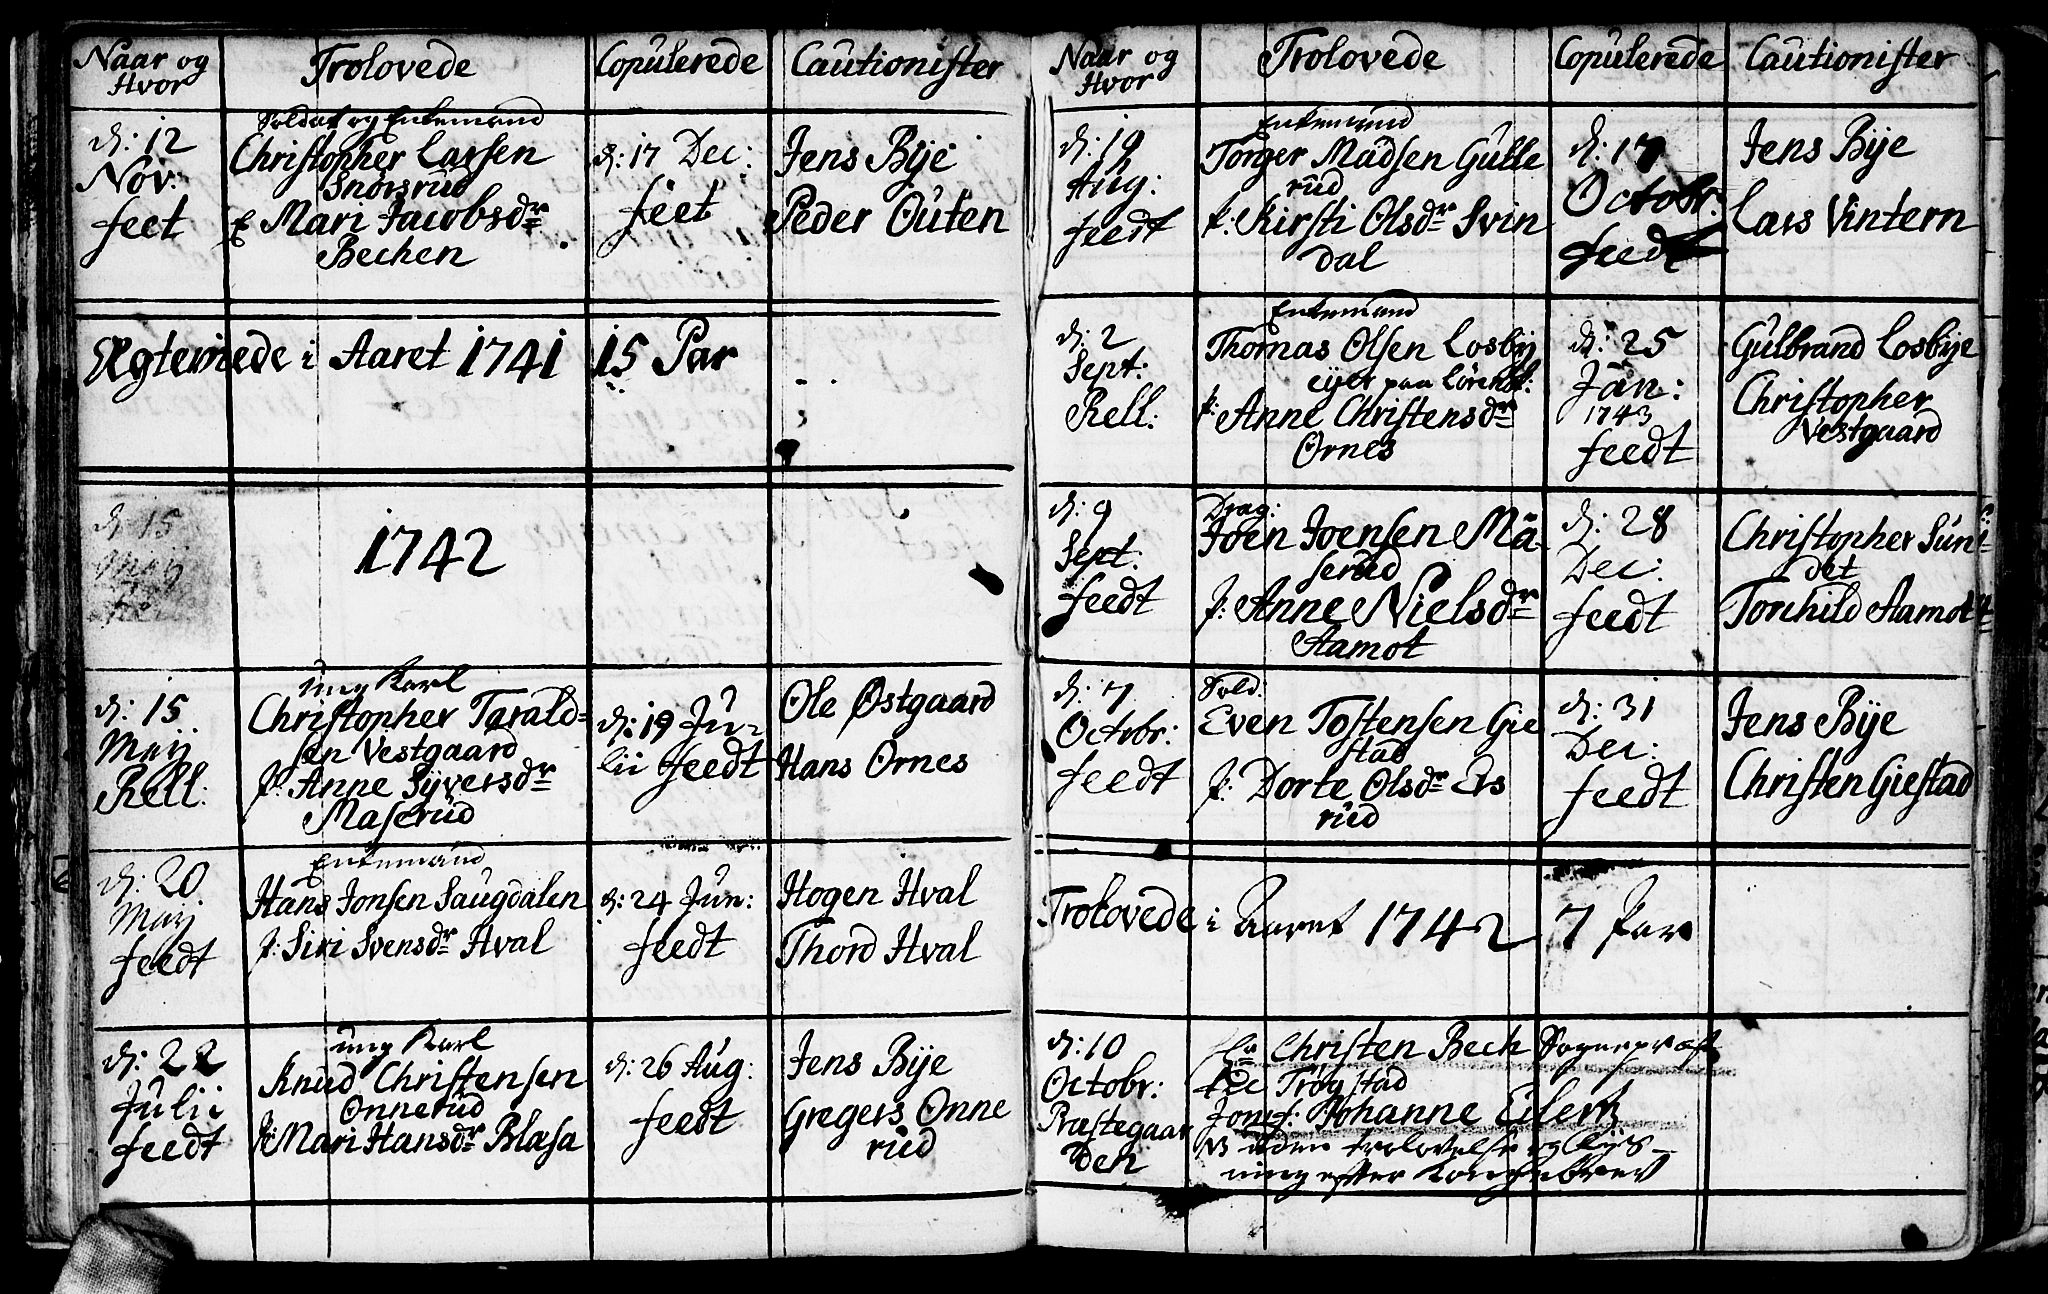 Naar og
Hvor
Trolovede
Copulerede
Cautionister
d: 12
Nov:
feet
Soldat og Enkemand
Christopher Larsen
Snorsrud
E Mari Jacobsdr
Bechen
d: 17 Dec:
feet
Jens Bÿe
Peder Outen
Egteviede i Aaret 1741
15 Par
d: 15
Maij
1742
d: 15
Maij
Rell:
ung Karl
Christopher Tarald-
sen Vestgaard
p: Anne Sÿversdr
Maserud
d: 19 Ju-
lii feedt
Ole Østgaard
Hans Ornes
d: 20
Maij
feedt
Enkemand
Hans Jonsen Saugdalen
p: Siri Svensdr Hval
d: 24 Jun:
feedt
Hogen Hval
Thord Hval
d: 22
Julii
feedt
ung Karl
Knud Christensen
Onnerud
p: Mari Hansdr Blasa
d: 26 Aug:
feedt
Jens Bÿe
Gregers Onne
rud
Naar og
Hvor
Trolovede
Copulerede
Cautionister
d: 19
Aug:
feedt
Enkemand
Torger Madsen Gulle
rud
p: Kirsti Olsdr Svin
dal
d: 17
Octobr:
feedt
Jens Bÿe
Lars Vintern
d: 2
Sept:
Rell:
Enkemand
Thomas Olsen Losbÿ
eÿer paa Lørensk:
p: Anne Christensdr
Ornes
d: 25
Jan:
1743
feedt
Gulbrand Losbÿe
Christopher
Vestgaard
d: 9
Sept:
feedt
Drag:
Joen Joensen Ma-
serud
p: Anne Nielsdr
Aamot
d: 28
Dec:
feedt
Christopher Sun-
det
Torchild Aamot
d: 7
Octobr:
feedt
Sold:
Even Tostensen Gie
stad
p: Dorte Olsdr Ers
rud
d: 31
Dec:
feedt
Jens Bÿe
Christen Giestad
Trolovede i Aaret 1742
7 Par
d: 10
Octobr:
Præstegaar
den
Hr Christen Bech Sognepræst
til Trøgstad
Jomf: Johanne Eilertz
NB uden trolovelse og liys-
ning efter Kongebrev